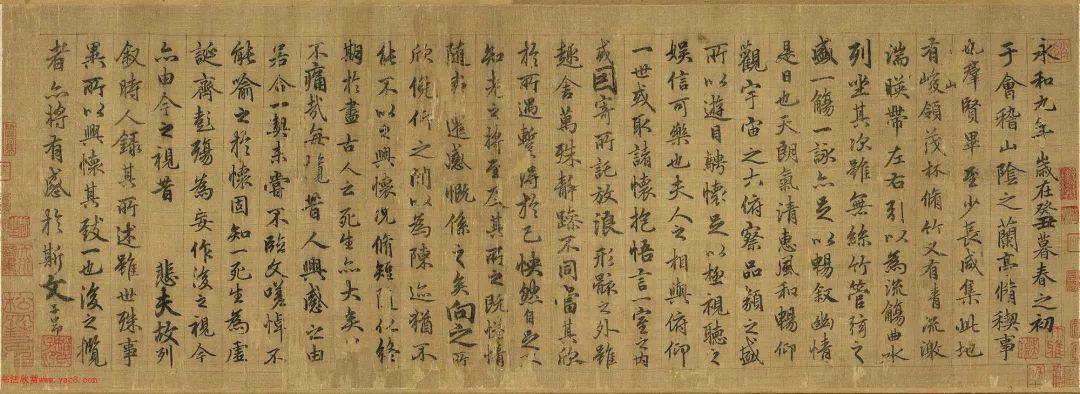 永和九年歲在癸丑暮春之初
于會稽山陰之蘭亭脩稧事
也羣賢畢至少長咸集此地
有山峻領茂林脩竹又有清流激
湍暎帶左右引以為流觴曲水
列坐其次雖無絲竹管弦之
盛一觴一詠亦足以暢叙幽情
是日也天朗氣清惠風和暢仰
觀宇宙之大俯察品類之盛
所以遊目騁懷足以極視聽之
娛信可樂也夫人之相與俯仰
一世或取諸懷抱悟言一室之内
或因寄所託放浪形骸之外雖
趣舍萬殊靜躁不同當其欣
於所遇暫得於己怏然自足不
知老之將至及其所之既惓情
隨事遷感慨係之矣向之所
欣俛仰之間以為陳迹猶不
能不以之興懷況脩短隨化終
期於盡古人云死生亦大矣
不痛哉每覽昔人興感之由
若合一契未嘗不臨文嗟悼不
能喻之於懷固知一死生為虛
誕齊彭殤為妄作後之視今
亦由今之視昔 悲夫故列
叙時人錄其所述雖世殊事
異所以興懷其致一也後之攬
者亦將有感於斯文 子昂
书法欣赏www.yac8.com